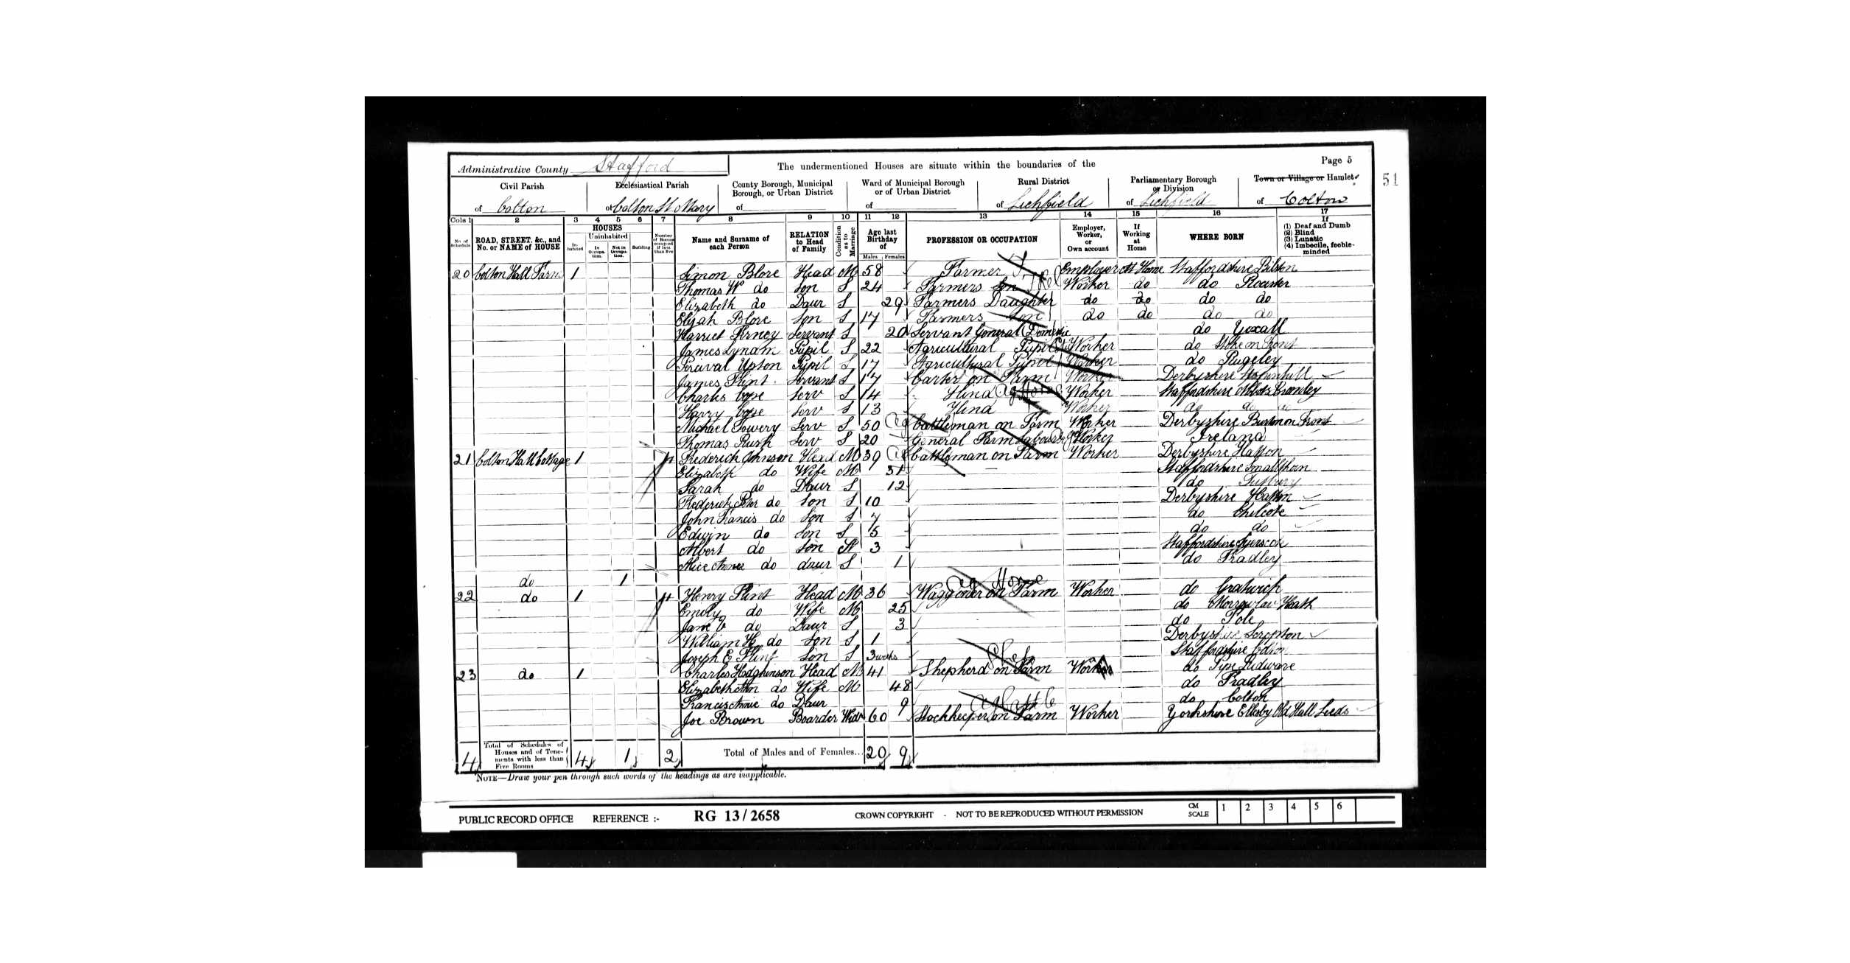 Administrative County Stafford
The undermentioned Houses are situate within the boundaries of the
Page 5
51
Civil Parish
of Colton
Ecclesiastical Parish
of Colton St Mary
County Borough, Municipal Borough, or Urban District
of
Ward of Municipal Borough or of Urban District
of
Rural District
of Lichfield
Parliamentary Borough or Division
of Lichfield
Town or Village or Hamlet
of Colton
Cols 1 2 3 4 5 6 7 8 9 10 11 12 13 14 15 16 17
No. of Schedule
ROAD, STREET, &c., and No. or NAME of HOUSE
HOUSES
Uninhabited
Building
Name and Surname of each Person
RELATION to Head of Family
Condition as to Marriage
Age last Birthday of
Males Females
PROFESSION OR OCCUPATION
Employer, Worker, or Own account
If Working at Home
WHERE BORN
If (1) Deaf and Dumb (2) Blind (3) Lunatic (4) Imbecile, feeble-minded
20 Colton Hall Farm 1 Simon Blore Head M 58 Farmer Employer At Home Staffordshire
Thomas W do Son S 24 Farmers Son Worker do do
Elizabeth do Daur S 29 Farmers Daughter do do do do
Elijah Blore Son S 17 Farmers Son do do do do
Harriet Servant S 20 Servant General Domestic do Yoxall
James Lynam Pupil S 22 Agricultural Pupil Worker do
Percival Upton Pupil S 17 Agricultural Pupil Worker do Rugeley
James Flint Servant S 17 Carter on Farm Worker Derbyshire
Charles Serv S 14 Worker Staffordshire
Harry Serv S 13 Worker do do
Michael Serv S 50 Cattleman on Farm Worker Derbyshire
Thomas Rush Serv S 20 General Farm Labourer Worker Ireland
21 Colton Hall Cottage 1 Frederick Johnson Head M 39 Cattleman on Farm Worker Derbyshire Hatton
Elizabeth do Wife M 31 Staffordshire Smallthorn
Sarah do Daur S 12 do Tutbury
Frederick do Son S 10 Derbyshire Hatton
John Francis do Son S 7 do Chilcote
Edwin do Son S 5 do do
Albert do Son S 3 Staffordshire
Alice Annie do daur S 1 do Fradley
do 1
22 do 1 Henry Flint Head M 36 Waggoner on Farm Worker do Gratwich
Emily do Wife M 25 do Heath
Jane E do Daur S 3 do
William H do Son S 1 Derbyshire
Joseph E Flint Son S 3 weeks Staffordshire Colton
23 do 1 Charles Hodgkinson Head M 41 Shepherd on Farm Worker do Pipe Ridware
Elizabeth do Wife M 48 do Fradley
Daur 9 do Colton
Joe Brown Boarder Widr 60 Stockkeeper on Farm Worker Yorkshire Old Hall Leeds
4 Total of Schedules of Houses and of Tenements with less than Five Rooms 4 1 2 Total of Males and of Females... 20 9
NOTE—Draw your pen through such words of the headings as are inapplicable.
PUBLIC RECORD OFFICE REFERENCE :- RG 13/2658 CROWN COPYRIGHT - NOT TO BE REPRODUCED WITHOUT PERMISSION CM SCALE 1 2 3 4 5 6